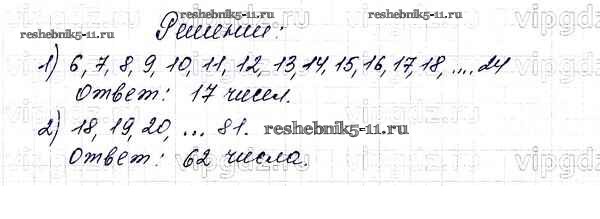 reshebnik5-11.ru
reshebnik5-11.ru
vipgdz
Решении:
1) 6, 7, 8, 9, 10, 11, 12, 13, 14, 15, 16, 17, 18, .... 24
Ответ: 17 чисел.
2) 18, 19, 20, ... 81. reshebnik5-11.ru
Ответ: 62 числа.